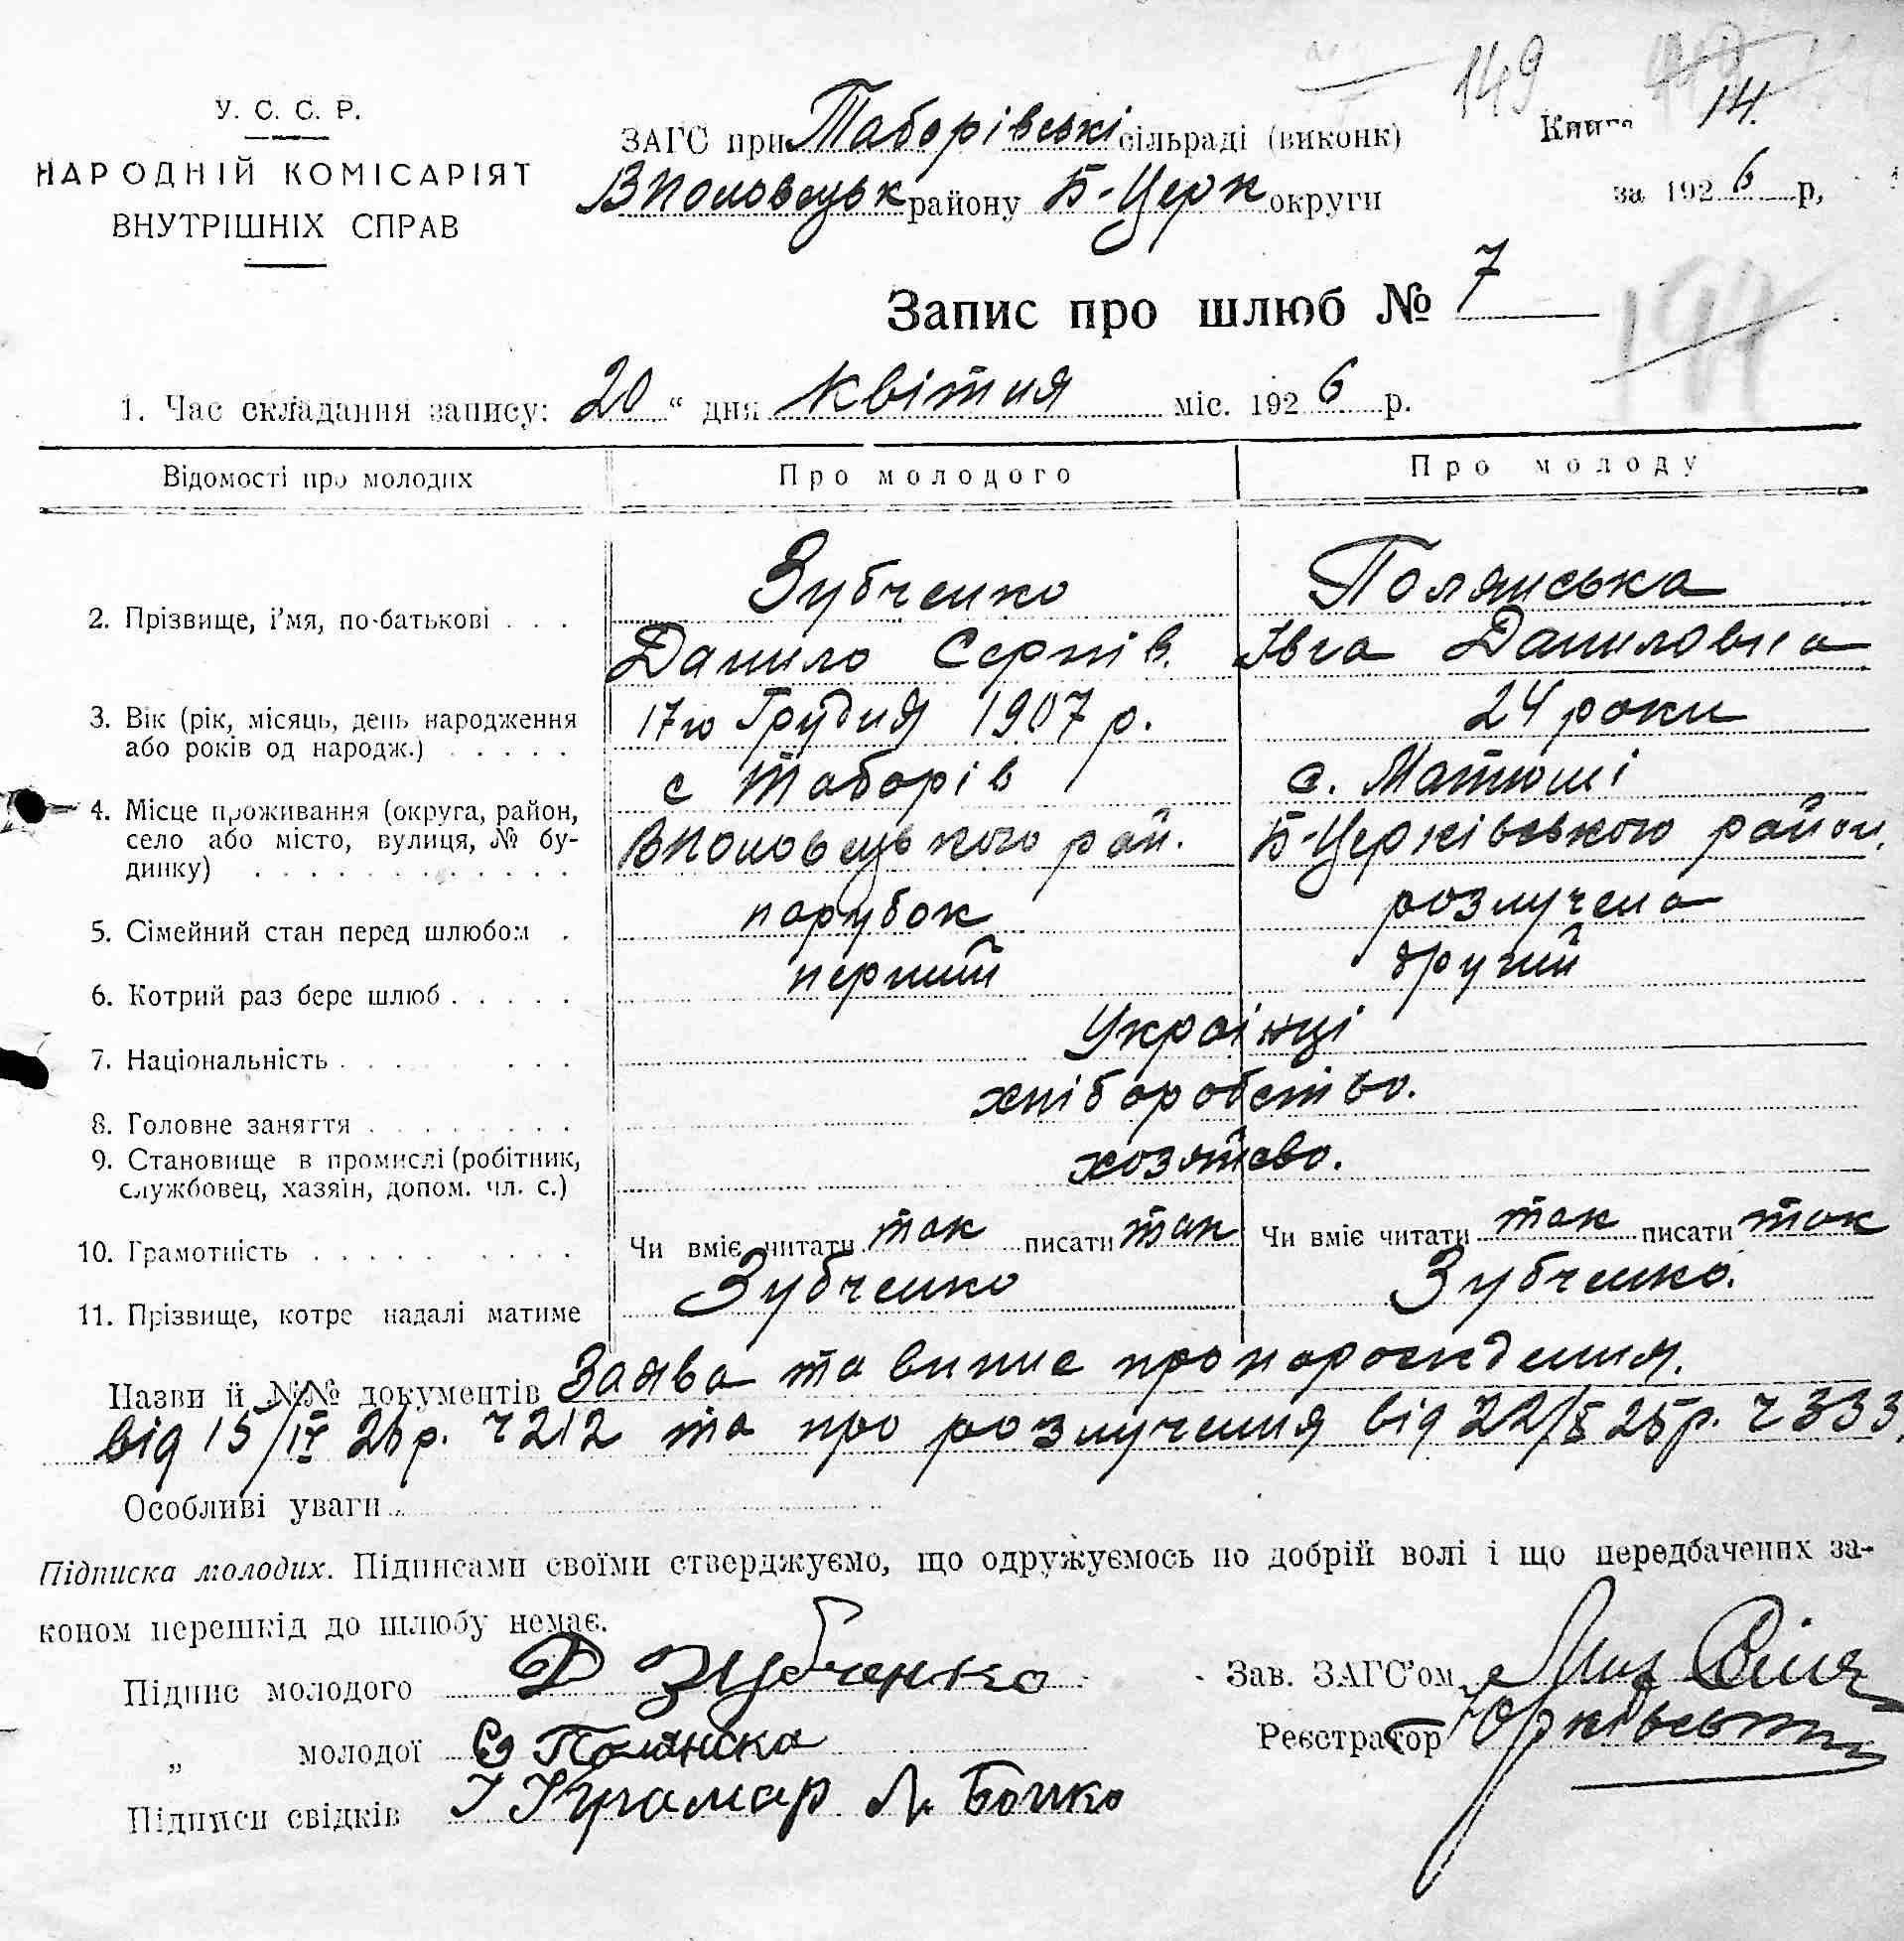 149
У. С. С. Р.
НАРОДНІЙ КОМІСАРІЯТ
ВНУТРІШНІХ СПРАВ
ЗАГС при Таборівські сільраді (виконк)
Книга 14.
ВПоловецьк району Б-Церк округи
за 1926 р,
Запис про шлюб № 7
1. Час складання запису: 20 “ дня квітня міс. 1926 р.
Відомості про молодих
Про молодого
Про молоду
2. Прізвище, і'мя, по-батькові . . .
Зубченко
Данило Сергіїв.
Полянська
Івга Даниловна
3. Вік (рік, місяць, день народження
або років од народж.) . . . . .
17го Грудня 1907 р.
24 роки
4. Місце проживання (округа, район,
село або місто, вулиця, № бу-
динку) . . . . . . . . . . . .
с Таборів
ВПоловецького рай.
с. Матюші
Б-Церківського район.
5. Сімейний стан перед шлюбом .
парубок
розлучена
6. Котрий раз бере шлюб . . . . .
перший
другий
7. Національність . . . . . . .
Українці
8. Головне заняття . . . . . . . .
хліборобство.
9. Становище в промислі (робітник,
службовец, хазяїн, допом. чл. с.)
хозяйсво.
10. Грамотність . . . . . . . . . .
Чи вміє читати так писати так
Чи вміє читати так писати так
11. Прізвище, котре надалі матиме
Зубченко
Зубченко.
Назви й №№ документів Заява та випис про народження.
від 15/IV 26р. ч 212 та про розлучення від 22/X 25р. ч 333.
Особливі уваги
Підписка молодих. Підписами своїми стверджуємо, що одружуємось по добрій волі і що передбачених за-
коном перешкід до шлюбу немає.
Підпис молодого Д Зубченко
Зав. ЗАГС'ом
„ молодої Є Полянска
Реєстратор
Підписи свідків І Крамар Л. Бойко